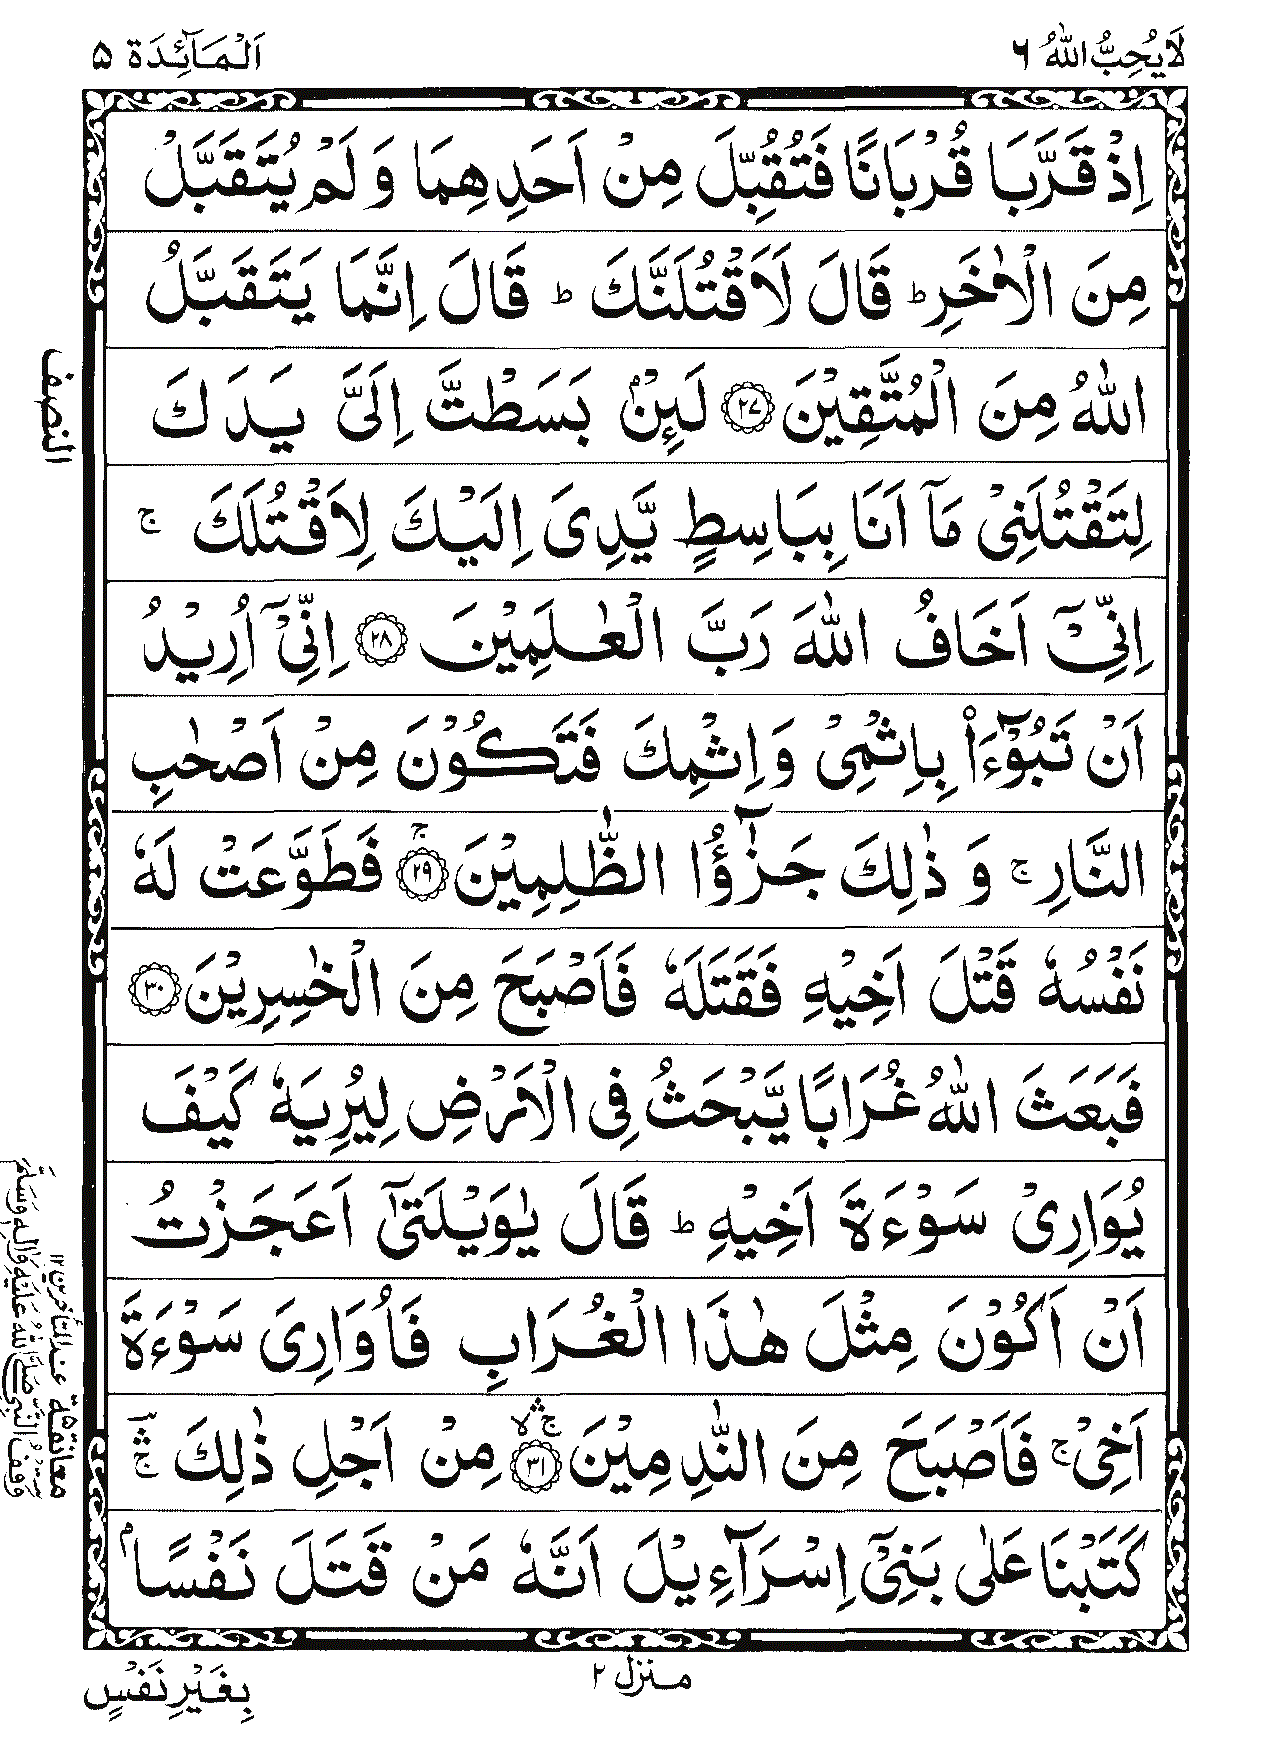 لَا يُحِبُّ اللهُ ٦
اَلْمَآئِدَة ٥
اِذْ قَرَّبَا قُرْبَانًا فَتُقُبِّلَ مِنْ اَحَدِهِمَا وَ لَمْ يُتَقَبَّلْ
مِنَ الْاٰخَرِ ؕ قَالَ لَاَقْتُلَنَّكَ ؕ قَالَ اِنَّمَا يَتَقَبَّلُ
اللهُ مِنَ الْمُتَّقِيْنَ ﴿۲۷﴾ لَئِنْۢ بَسَطْتَّ اِلَیَّ يَدَكَ
النصف
لِتَقْتُلَنِیْ مَاۤ اَنَا بِبَاسِطٍ يَّدِیَ اِلَيْكَ لِاَقْتُلَكَ ۚ
اِنِّیْۤ اَخَافُ اللهَ رَبَّ الْعٰلَمِيْنَ ﴿۲۸﴾ اِنِّیْۤ اُرِيْدُ
اَنْ تَبُوْٓءَاْ بِاِثْمِیْ وَاِثْمِكَ فَتَكُوْنَ مِنْ اَصْحٰبِ
النَّارِ ۚ وَ ذٰلِكَ جَزٰٓؤُا الظّٰلِمِيْنَ ﴿۲۹﴾ۚ فَطَوَّعَتْ لَهٗ
نَفْسُهٗ قَتْلَ اَخِيْهِ فَقَتَلَهٗ فَاَصْبَحَ مِنَ الْخٰسِرِيْنَ ﴿۳۰﴾
فَبَعَثَ اللهُ غُرَابًا يَّبْحَثُ فِی الْاَرْضِ لِيُرِيَهٗ كَيْفَ
يُوَارِیْ سَوْءَةَ اَخِيْهِ ؕ قَالَ يٰوَيْلَتٰۤی اَعَجَزْتُ
اَنْ اَكُوْنَ مِثْلَ هٰذَا الْغُرَابِ فَاُوَارِیَ سَوْءَةَ
اَخِیْ ۚ فَاَصْبَحَ مِنَ النّٰدِمِيْنَ ﴿۳۱﴾ۚۛۙ مِنْ اَجْلِ ذٰلِكَ ۚۛؔ
معانقة ٥ عند المتأخرين ١٢
وقف النبی صَلَّی اللهُ عَلَيْهِ وَاٰلِهٖ وَسَلَّمَ
كَتَبْنَا عَلٰی بَنِیْۤ اِسْرَآءِيْلَ اَنَّهٗ مَنْ قَتَلَ نَفْسًاۢ
منزل ٢
بِغَيْرِ نَفْسٍ